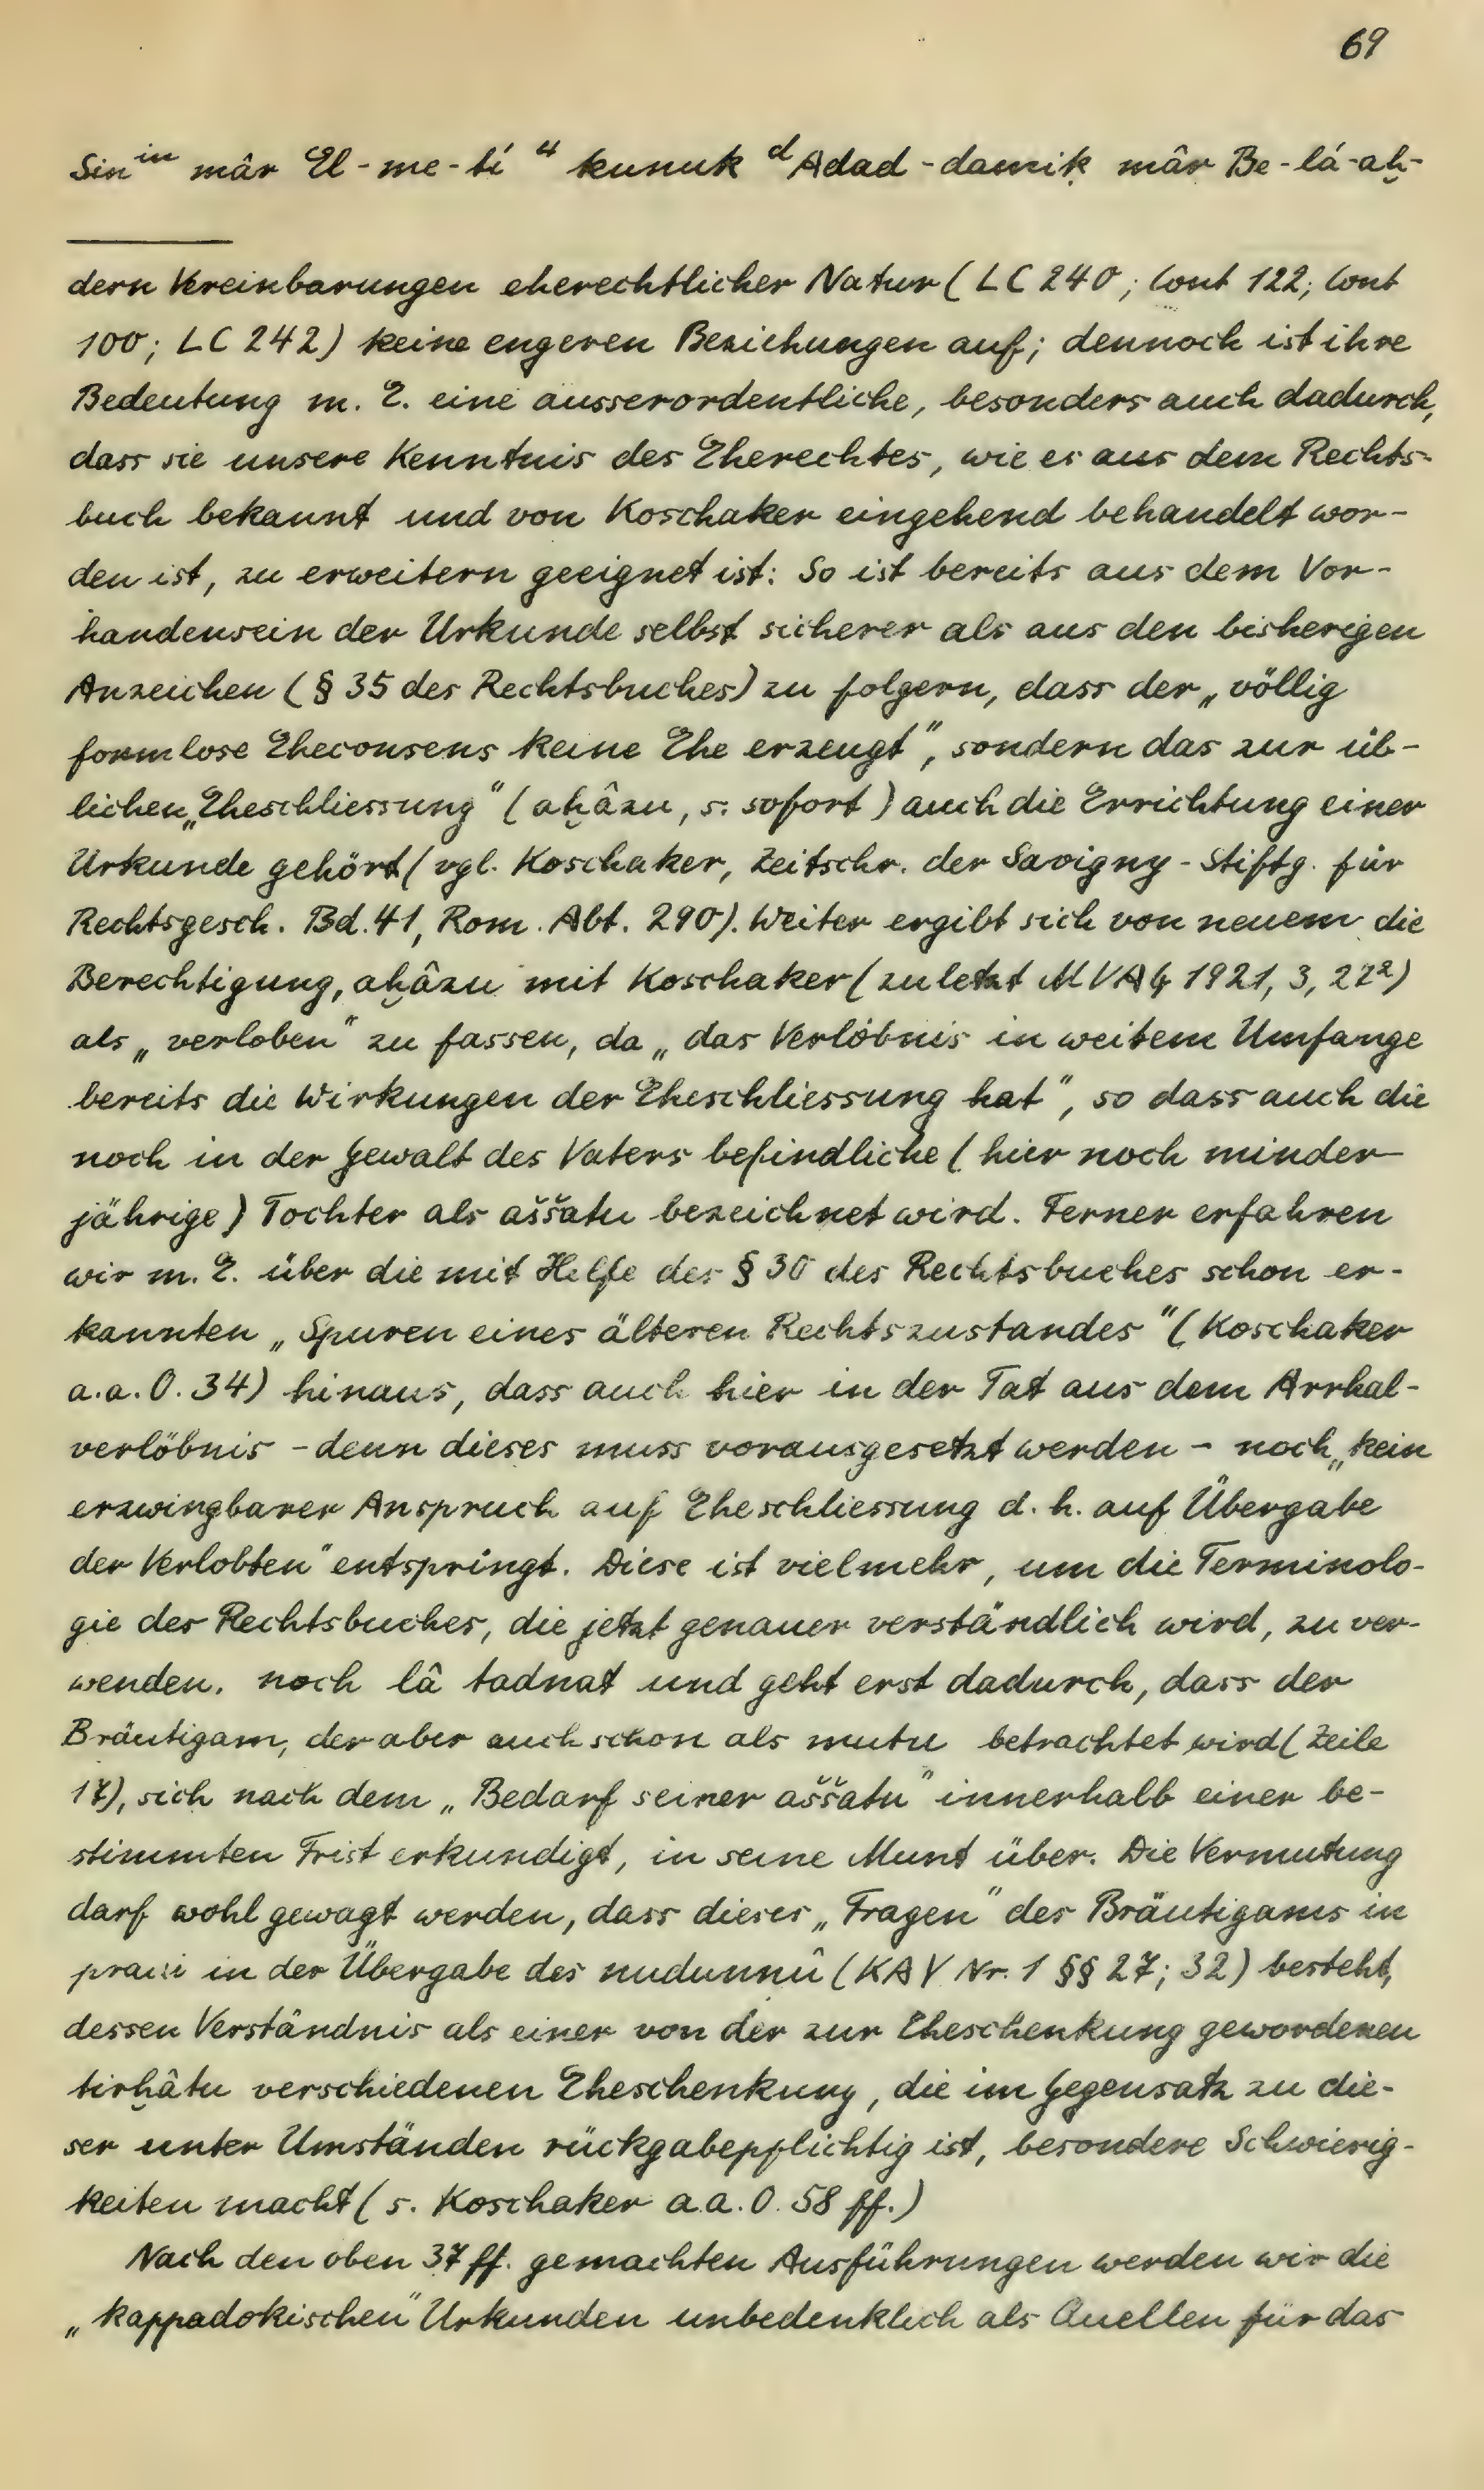 69
Sin^in mâr El-me-tí ^4 kunuk ^dAdad-damiḳ mâr Be-lá-aḫ-
dern Vereinbarungen eherechtlicher Natur (LC 240; Cont 122; Cont
100; LC 242) keine engeren Beziehungen auf; dennoch ist ihre
Bedeutung m. E. eine ausserordentliche, besonders auch dadurch,
dass sie unsere Kenntnis des Eherechtes, wie es aus dem Rechts-
buch bekannt und von Koschaker eingehend behandelt wor-
den ist, zu erweitern geeignet ist: So ist bereits aus dem Vor-
handensein der Urkunde selbst sicherer als aus den bisherigen
Anzeichen (§ 35 des Rechtsbuches) zu folgern, dass der „völlig
formlose Eheconsens keine Ehe erzeugt", sondern das zur üb-
lichen „Eheschliessung" (aḫâzu, s. sofort) auch die Errichtung einer
Urkunde gehört (vgl. Koschaker, Zeitschr. der Savigny-Stiftg. für
Rechtsgesch. Bd. 41, Rom. Abt. 290). Weiter ergibt sich von neuem die
Berechtigung, aḫâzu mit Koschaker (zuletzt MVAG 1921, 3, 22²)
als „verloben" zu fassen, da „das Verlöbnis in weitem Umfange
bereits die Wirkungen der Eheschliessung hat", so dass auch die
noch in der Gewalt des Vaters befindliche (hier noch minder-
jährige) Tochter als aššatu bezeichnet wird. Ferner erfahren
wir m. E. über die mit Helfe des § 30 des Rechtsbuches schon er-
kannten „Spuren eines älteren Rechtszustandes" (Koschaker
a.a.O. 34) hinaus, dass auch hier in der Tat aus dem Arrhal-
verlöbnis - denn dieses muss vorausgesetzt werden - noch „kein
erzwingbarer Anspruch auf Eheschliessung d. h. auf Übergabe
der Verlobten" entspringt. Diese ist vielmehr, um die Terminolo-
gie des Rechtsbuches, die jetzt genauer verständlich wird, zu ver-
wenden. noch lâ tadnat und geht erst dadurch, dass der
Bräutigam, der aber auch schon als mutu betrachtet wird (Zeile
17), sich nach dem „Bedarf seiner aššatu" innerhalb einer be-
stimmten Frist erkundigt, in seine Munt über. Die Vermutung
darf wohl gewagt werden, dass dieses „Fragen" des Bräutigams in
praxi in der Übergabe des nudunnû (KAV Nr. 1 §§ 27; 32) besteht,
dessen Verständnis als einer von der zur Eheschenkung gewordenen
tirḫâtu verschiedenen Eheschenkung, die im Gegensatz zu die-
ser unter Umständen rückgabepflichtig ist, besondere Schwierig-
keiten macht (s. Koschaker a.a.O. 58 ff.)
Nach den oben 37 ff. gemachten Ausführungen werden wir die
„kappadokischen" Urkunden unbedenklich als Quellen für das